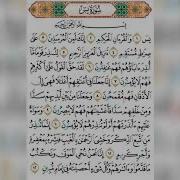 سُورَةُ يسٓ
بِسْمِ ٱللَّهِ ٱلرَّحْمَٰنِ ٱلرَّحِيمِ
يسٓ ١ وَٱلْقُرْءَانِ ٱلْحَكِيمِ ٢ إِنَّكَ لَمِنَ ٱلْمُرْسَلِينَ ٣ عَلَىٰ
صِرَٰطٍ مُّسْتَقِيمٍ ٤ تَنزِيلَ ٱلْعَزِيزِ ٱلرَّحِيمِ ٥ لِتُنذِرَ قَوْمًا مَّآ
أُنذِرَ ءَابَآؤُهُمْ فَهُمْ غَٰفِلُونَ ٦ لَقَدْ حَقَّ ٱلْقَوْلُ عَلَىٰٓ أَكْثَرِهِمْ
فَهُمْ لَا يُؤْمِنُونَ ٧ إِنَّا جَعَلْنَا فِىٓ أَعْنَٰقِهِمْ أَغْلَٰلًا فَهِىَ إِلَى
ٱلْأَذْقَانِ فَهُم مُّقْمَحُونَ ٨ وَجَعَلْنَا مِنۢ بَيْنِ أَيْدِيهِمْ سَدًّا
وَمِنْ خَلْفِهِمْ سَدًّا فَأَغْشَيْنَٰهُمْ فَهُمْ لَا يُبْصِرُونَ ٩ وَسَوَآءٌ
عَلَيْهِمْ ءَأَنذَرْتَهُمْ أَمْ لَمْ تُنذِرْهُمْ لَا يُؤْمِنُونَ ١٠ إِنَّمَا تُنذِرُ
مَنِ ٱتَّبَعَ ٱلذِّكْرَ وَخَشِىَ ٱلرَّحْمَٰنَ بِٱلْغَيْبِ فَبَشِّرْهُ بِمَغْفِرَةٍ
وَأَجْرٍ كَرِيمٍ ١١ إِنَّا نَحْنُ نُحْىِ ٱلْمَوْتَىٰ وَنَكْتُبُ مَا
قَدَّمُوا۟ وَءَاثَٰرَهُمْ وَكُلَّ شَىْءٍ أَحْصَيْنَٰهُ فِىٓ إِمَامٍ مُّبِينٍ ١٢